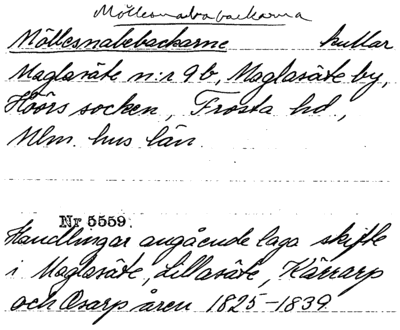 Möllesnababackarna
Möllesnabebackarne kullar
Maglasäte n:r 9 b, Maglasäte by,
Höörs socken, Frosta hd,
Mlm. hus län.
Nr 5559.
Handlingar angående laga skifte
i Maglasäte, Lillasäte, Kärrarp
och Osarp åren 1825-1839